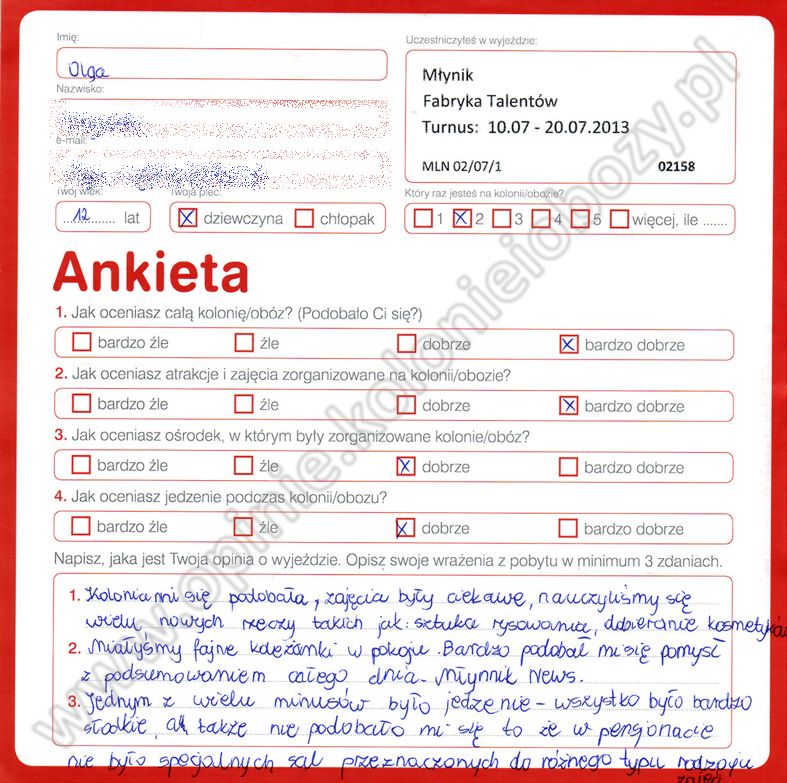 Imię:
Olga
Uczestniczyłeś w wyjeździe:
Młynik
Fabryka Talentów
Turnus: 10.07 - 20.07.2013
MLN 02/07/1 02158
Nazwisko:
e-mail:
Twój wiek:
12 lat
Twoja płeć:
dziewczyna chłopak
Który raz jesteś na kolonii/obozie?
1 2 3 4 5 więcej, ile .......
Ankieta
1. Jak oceniasz całą kolonię/obóz? (Podobało Ci się?)
bardzo źle źle dobrze bardzo dobrze
2. Jak oceniasz atrakcje i zajęcia zorganizowane na kolonii/obozie?
bardzo źle źle dobrze bardzo dobrze
3. Jak oceniasz ośrodek, w którym były zorganizowane kolonie/obóz?
bardzo źle źle dobrze bardzo dobrze
4. Jak oceniasz jedzenie podczas kolonii/obozu?
bardzo źle źle dobrze bardzo dobrze
Napisz, jaka jest Twoja opinia o wyjeździe. Opisz swoje wrażenia z pobytu w minimum 3 zdaniach.
1. Kolonia mi się podobała, zajęcia były ciekawe, nauczyliśmy się
wielu nowych rzeczy takich jak: sztuka rysowania, dobieranie kosmetyków
2. Miałyśmy fajne koleżanki w pokoju. Bardzo podobał mi się pomysł
z podsumowaniem całego dnia - Młynnik News.
3. Jednym z wielu minusów było jedzenie - wszystko było bardzo
słodkie, a także nie podobało mi się to że w pensjonacie
nie było specjalnych sal przeznaczonych do różnego typu rodzaju
zajęć
www.opinie.kolonieiobozy.pl